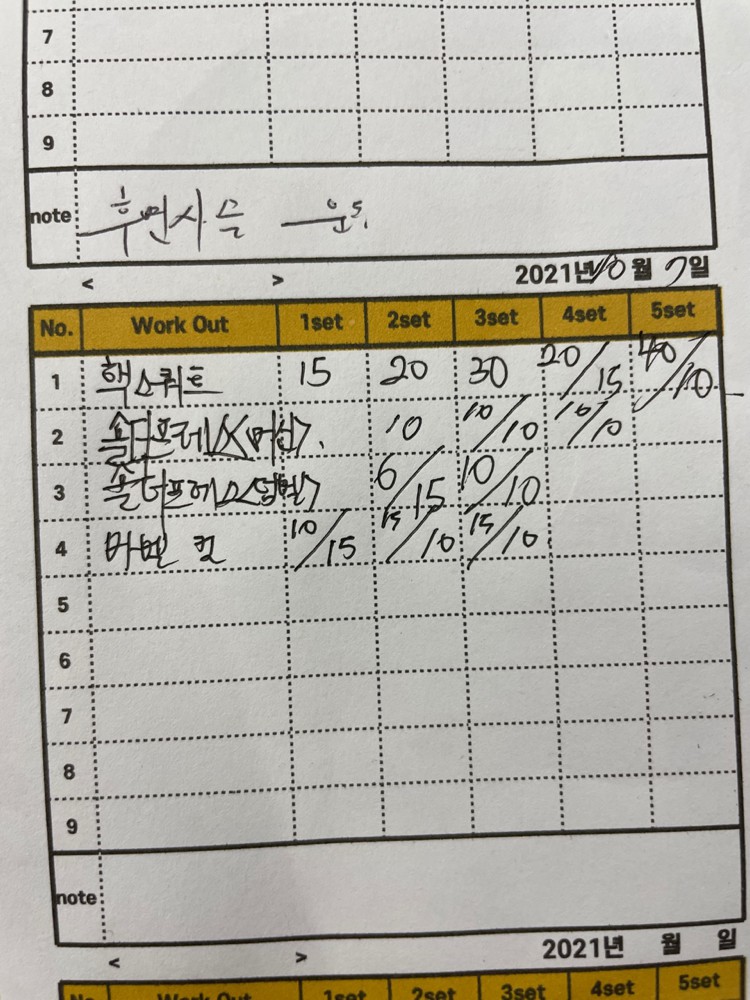 7
8
9
note 후면사슬 운동.
< > 2021년 10월 7일
No. Work Out 1set 2set 3set 4set 5set
1 핵스쿼트 15 20 30 20/15 40/10
2 숄더프레스<머신>. 10 10/10 10/10
3 숄더프레스<덤벨> 6/15 10/10
4 바벨 컬 10/15 15/10 15/10
5
6
7
8
9
note
< > 2021년 월 일
No. Work Out 1set 2set 3set 4set 5set